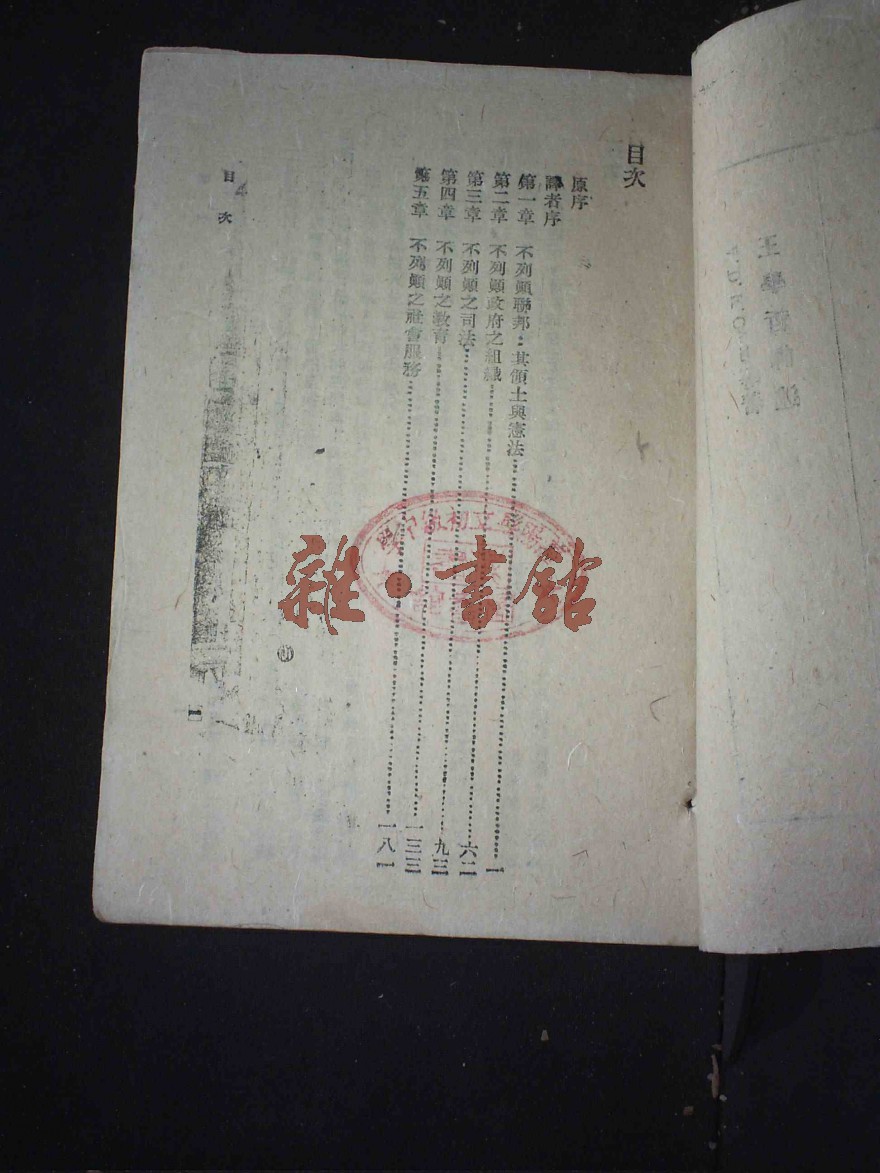 目次
原序
譯者序
第一章 不列顛聯邦：其領土與憲法……一
第二章 不列顛政府之組織……六二
第三章 不列顛之司法……九三
第四章 不列顛之教育……一三三
第五章 不列顛之社會服務……一八一
目 次
一
雜·書館